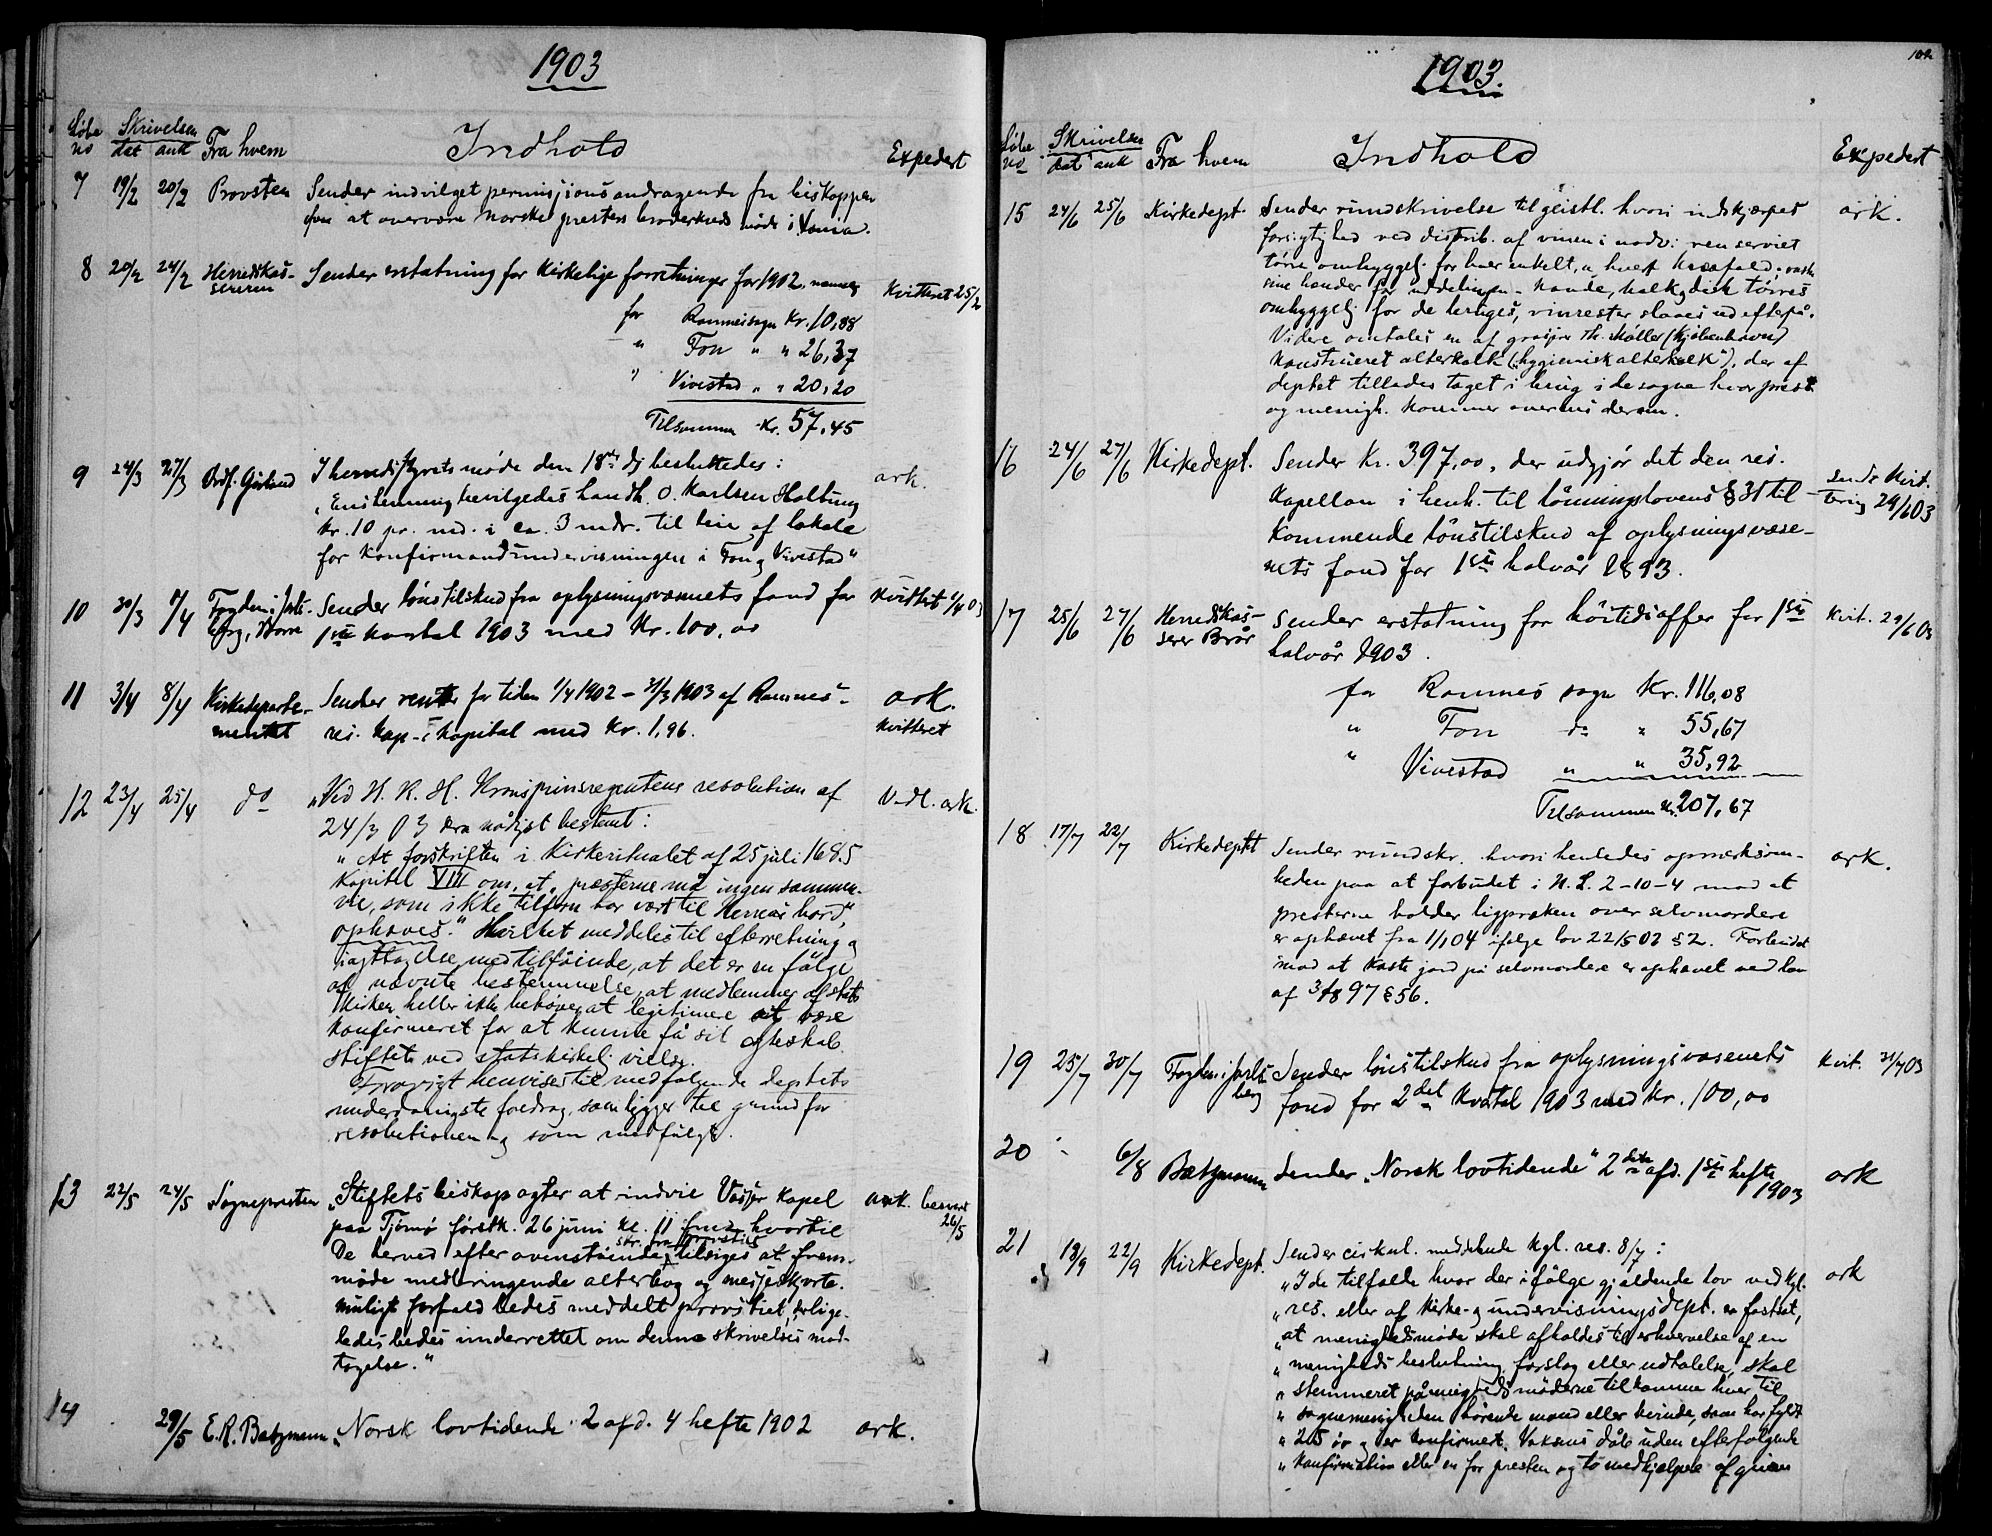 1903
Løbe no Skrivelsen dat ank Fra hvem Indhold Expedert
7 19/2 20/2 Provsten Sender indvilget permisjonsandragende fra biskoppen
for at overvære norske presters broderkreds møde i
8 20/2 24/2 Herredskas- Sender erstatning for kirkelige forretninger for 1902, nemlig Kvitteret 25/2
sereren
for Ramnes sogn Kr. 10,88
" Fon " " 26,37
" Vivestad " " 20,20
Tilsammen Kr. 57,45
9 24/3 27/3 Ordf. I herredstyrets møde den 18de ds besluttedes: ark.
"Enstemmig bevilgedes handh. O. Karlsen Haltung
kr. 10 pr. md. i ca. 3 mdr. til leie af lokale
for konfirmandundervisningen i Fon og Vivestad"
10 30/3 1/4 Fogden i Jarls- Sender lønstilskud fra oplysningsvæsenets fond for Kvittert 1/4 03
berg, 1ste kvartal 1903 med Kr. 100,00
11 3/4 8/4 Kirkedeparte- Sender renter for tiden 1/4 1902 – 31/3 1903 af Ramnes ark.
mentet res. kap. kapital med Kr. 1,96. Kvitteret
12 23/4 25/4 do "Ved H. K. H. Kronprinsregentens resolution af Vedl. ark.
24/3 03 er nådigst bestemt:
"At forskriften i Kirkeritualet af 25 juli 1685
Kapitel VIII om, at "præsterne må ingen sammen-
vie, som ikke tilforn har vært til Herrens bord",
ophæves." Hvilket meddeles til efterretning og
iagttagelse med tilføiende, at det er en følge
af nævnte bestemmelse, at medlemmer af stats
kirken heller ikke behøver at legitimere at være
konfirmeret for at kunne få sit ægteskab
stiftet ved statskirkelig vielse.
Forøvrigt henvises til medfølgende deptets
underdanigste foredrag, som ligger til grund for
resolutionen og som medfulgte.
13 22/5 24/5 Sognepresten "Stiftets biskop agter at indvie Vasser kapel ark. besvaret
paa Tjømø førstk. 26 juni kl. 11 fmd, hvortil 26/5
skr. fra provstiet
De herved efter ovenstående tilsiges at frem-
møde medbringende alterbog og messeskjorte.
Muligt forfald bedes meddelt provstiet, ligele-
ledes bedes underrettet om denne skrivelses mod-
tagelse."
14 29/5 E. R. Batzmann "Norsk lovtidende 2 afd. 4 hefte 1902 ark.
102
1903.
Løbe no Skrivelsen dat ank Fra hvem Indhold Expedert
15 24/6 25/6 Kirkedept. Sender rundskrivelse til geistl. hvori indskjærpes ark.
forsigtighed ved distrib. af vinen i nadv: ren serviet
tørre omhyggelig for hver enkelt, vaske
sine hænder før uddelingen – kande, kalk og disk tørres
omhyggelig før de bruges, vinrester slaaes ud efterpå.
Videre omtales en af grosjer Th. Møller (Kjøbenhavn)
konstrueret alterkalk ("hygienisk alterkalk"), der af
deptet tillades taget i brug i de sogne hvor prest
og menigh. kommer overens derom.
16 24/6 27/6 Kirkedept. Sender Kr. 397,00, der udgjør det den res. Sendt kvit-
kapellan i henh. til lønningslovens § 31 til- tering 29/6 03
kommende lønstilskud af oplysningsvæse-
nets fond for 1ste halvår 1893.
17 25/6 27/6 Herredskas- Sender erstatning for høitidsoffer for 1ste Kvit. 29/6 03
serer Brår halvår 1903.
for Ramnes sogn Kr. 116,08
" Fon do " 55,67
" Vivestad " " 35,92
Tilsammen Kr. 207,67
18 17/7 22/7 Kirkedeptet Sender rundskr. hvori henledes opmærksom- ark.
heden paa at forbudet i N. L. 2-10-4 mod at
presterne holder ligpræken over selvmordere
er ophævet fra 1/1 04 ifølge lov 22/5 02 § 2. Forbudet
mod at kaste jord på selvmordere er ophævet ved lov
af 3/8 97 § 56.
19 25/7 30/7 Fogden i Jarls- Sender lønstilskud fra oplysningsvæsenets Kvit. 31/7 03
berg fond for 2det kvartal 1903 med Kr. 100,00
20 6/8 Batzmann Sender "Norsk lovtidende" 2den afd. 1ste hefte ark
1903
21 18/9 22/9 Kirkedept. Sender cirkul. meddelende kgl. res. 8/7: ark
"I de tilfælde hvor der i følge gjældende lov ved kgl.
" res. eller af kirke- og undervisningsdept. er fastsat,
" at menighedsmøde skal afholdes til erhvervelse af en
" menigheds beslutning, forslag eller udtalelse, skal
" stemmeret på menighedsmøderne tilkomme hver til
" sognemenigheden hørende mand eller kvinde, som har fyldt
" 25 år og er konfirmert. Voksnes dåb uden efterfølgende
" konfirmation eller en for presten og to medhjælpere afgiven